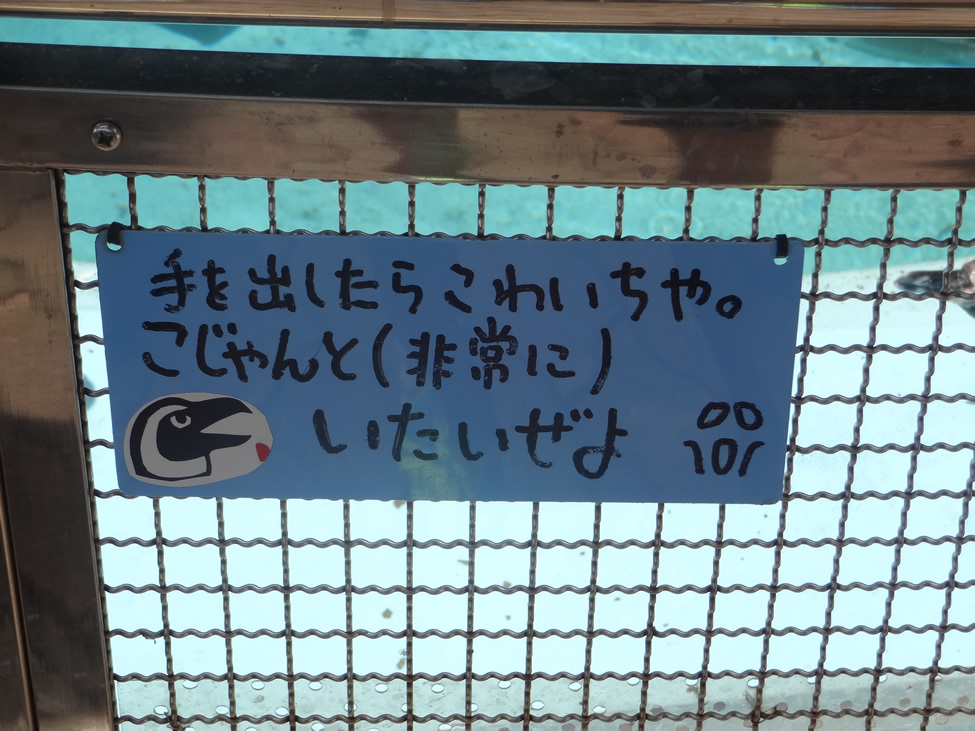 手を出したらこわいちや。
こじゃんと(非常に)
いたいぜよ